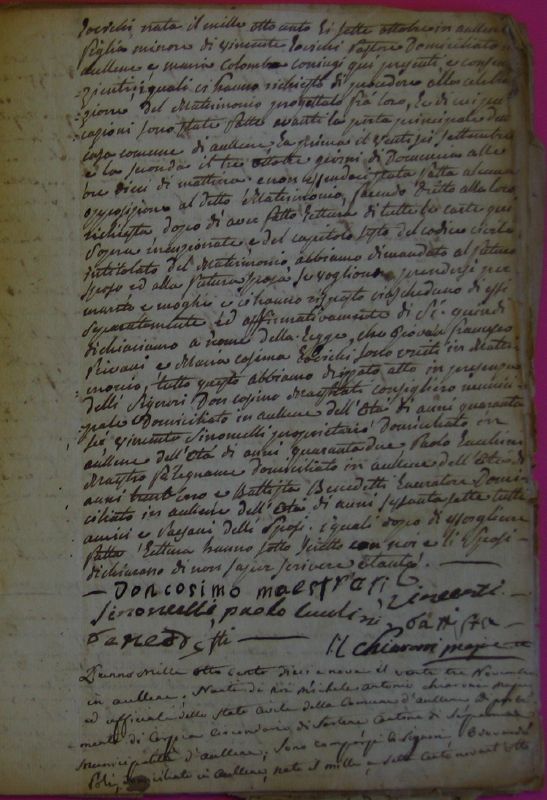 nata il mille otto cento sette ottobre in aullene
figlia minore di vincente Pastore Domiciliato
aullene e maria Colomba coniugi qui presenti e consen-
-zienti quali ci hanno richiesto di procedere alla celebra-
-zione del Matrimonio progettato fra loro, e di cui pu-
cazioni sono state fatte avanti la porta principale della
casa comune di aullene la prima il venti sei settembre
e la seconda il tre ottobre giorni di Domenica alle
ore dieci di mattina e non essendoci stata fatta alcuna
opposizione al detto Matrimonio, facendo Dritto alla loro
richiesta dopo di aver fatto lettura di tutte le carte qui
sopra menzionate e del capitolo sesto del codice civile
intitolato del Matrimonio abbiamo dimandato al futuro
sposo ed alla futura sposa se vogliono prendersi per
marito e moglie e ci hanno risposto ciascheduno di essi
separatamente ed affirmativamente di Sì quindi
dichiariamo a nome della legge, che Giovan francesco
e Maria cosima sono uniti in Matri-
-monio, tutto questo abbiamo disteso atto in presenza
delli Signori Don cosimo Maestrati consigliere munici-
pale Domiciliato in aullene dell'età di anni quaranta
sei vincente Simonelli proprietario Domiciliato in
aullene dell'età di anni quaranta due Paolo Lucchini
Maestro falegname Domiciliato in aullene dell'età di
anni trent otto e Battista Benedetti Lavoratore Domi-
ciliato in aullene dell'età di anni sessanta sette tutti
amici e Paesani delli sposi. i quali dopo di essergliene
fatta lettura hanno sotto scritto con noi e li sposi
dichiarano di non saper scrivere
— Don cosimo maestrati
Simonelli, paolo Lucchini Vincenti —
benedetti — batista
Chiaroni maire
L'anno Mille otto cento dieci e nove il venti tre Novembre
in aullene. Noi Michele antonio chiaroni maire
ed officiale dello Stato Civile della Comune d'aullene di parti-
mento di Corsica circondario di Sartene Cantone di
Municipalità d'aullene, sono comparsi li Signori
Poli, domiciliato in aullene, nato il mille e sette cento novant otto